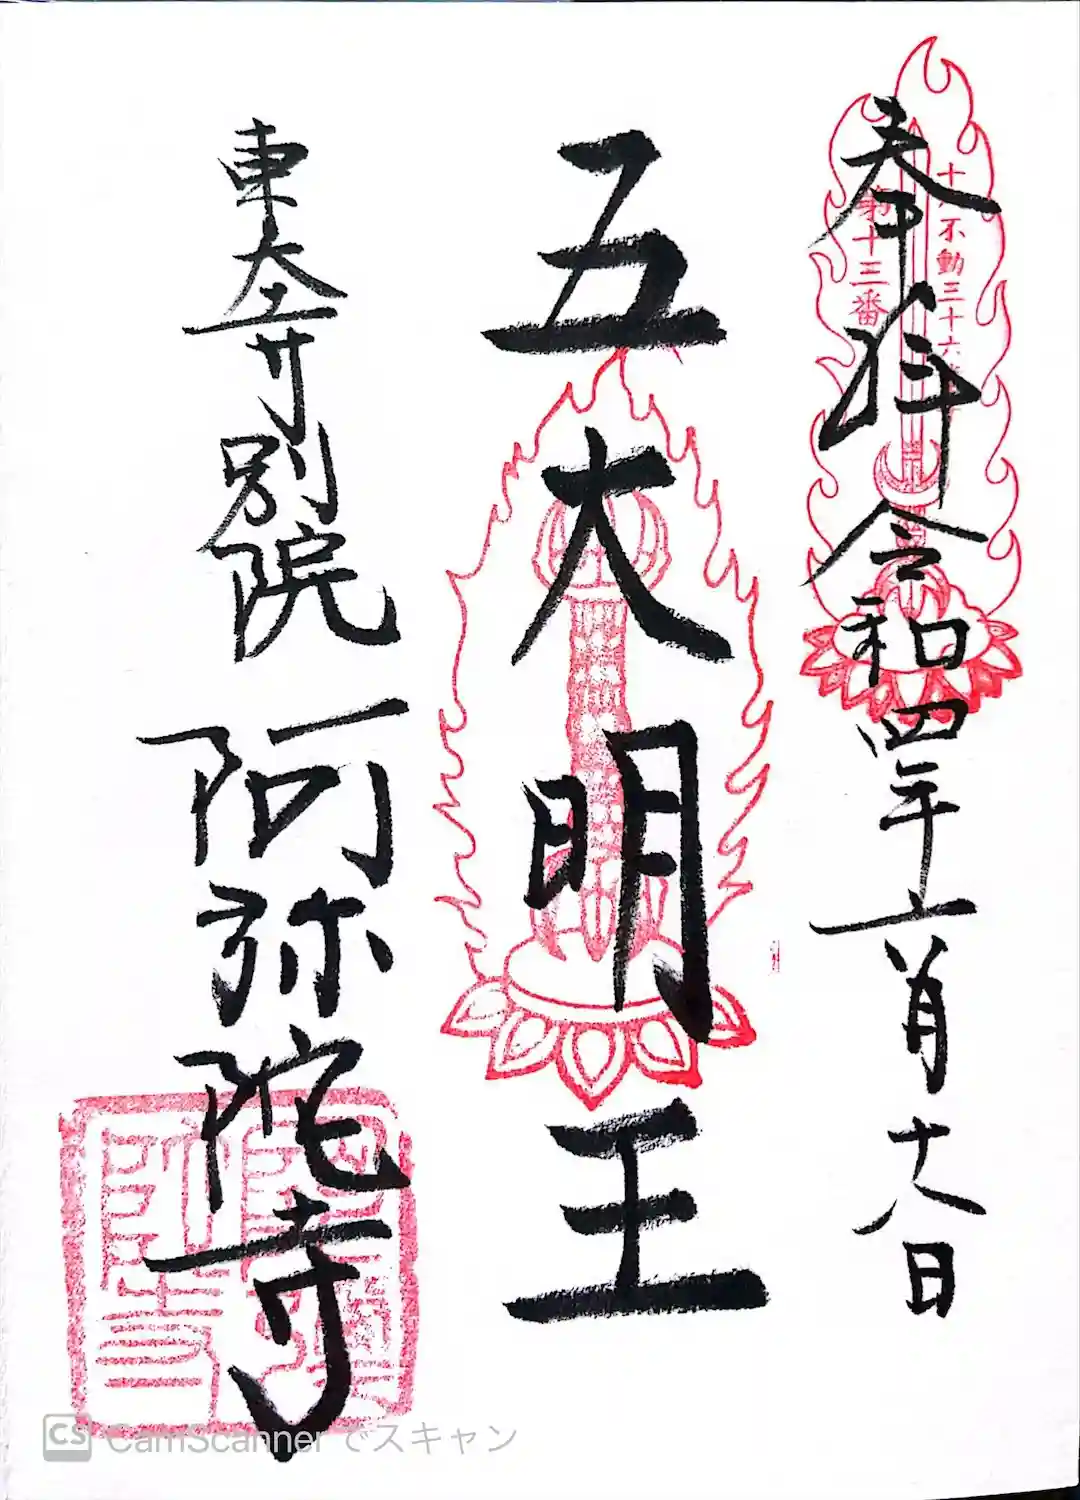 奉拝 令和四年六月十八日
不動三十六
第十三番
五大明王
東大寺別院 阿弥陀寺
CS CamScannerでスキャン